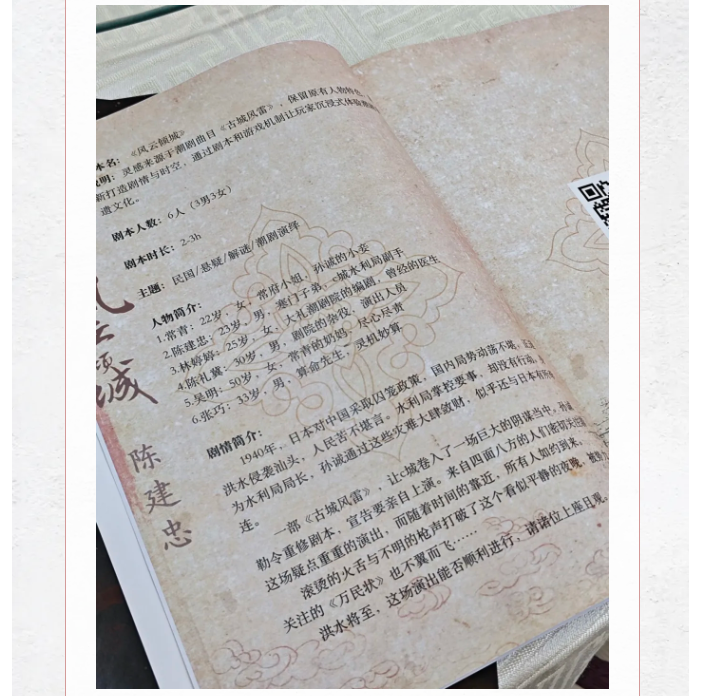 本名：《风云倾城》
说明：灵感来源于潮剧曲目《古城风雷》，保留原有人物
新打造剧情与时空，通过剧本和游戏机制让玩家沉浸式体验
遗文化。
剧本人数：6人（3男3女）
剧本时长：2-3h
主题：民国/悬疑/解谜/潮剧演绎
人物简介：
1.常青：22岁，女，常府小姐，孙诚的小妾
2.陈建忠：23岁，男，寒门子弟，c城水利局副手
3.林婷婷：25岁，女，大礼潮剧院的编剧，曾经的医生
4.陈礼冀：30岁，男，剧院的杂役、演出人员
5.吴明：50岁，女，常青的奶妈，尽心尽责
6.张巧：33岁，男，算命先生，灵机妙算
剧情简介：
1940年，日本对中国采取囚笼政策，国内局势动荡不堪，
洪水侵袭汕头，人民苦不堪言。水利局掌控要事，却没有行动，
为水利局局长，孙诚通过这些灾难大肆敛财，似乎还与日本有所
连。
一部《古城风雷》，让c城卷入了一场巨大的阴谋当中，
勒令重修剧本，宣告要亲自上演。来自四面八方的人们密切关注
这场疑点重重的演出，而随着时间的靠近，所有人如约到来，
滚烫的火舌与不明的枪声打破了这个看似平静的夜晚，
关注的《万民状》也不翼而飞……
洪水将至，这场演出能否顺利进行，请诸位上座且观。
倾
城
陈
建
忠